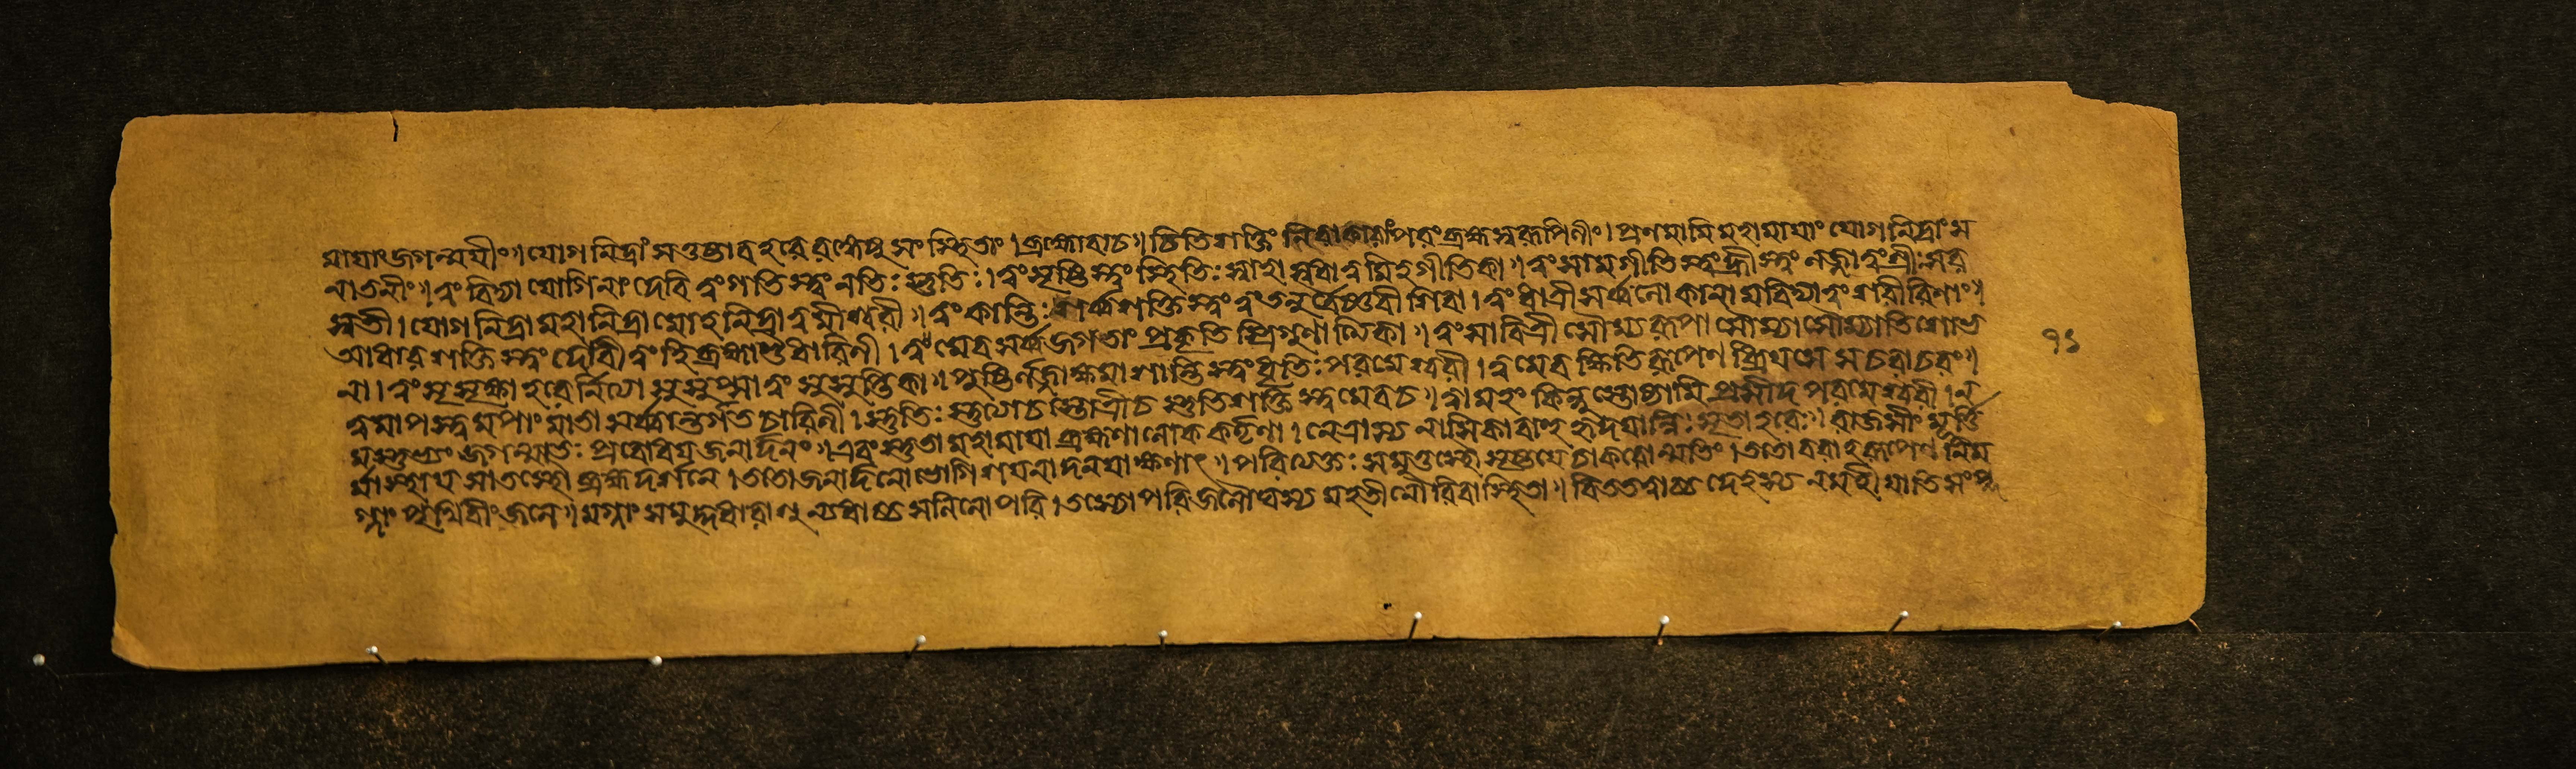 মাযাং জগন্ময়ীং॥ যোগনিদ্রাং স তুষ্টাব হরেরঙ্গেষু সংস্থিতাং। ব্রহ্মোবাচ॥ চিতিশক্তিং নিরাকারাং পরংব্রহ্মস্বরূপিণীং। প্রণমামি মহামাযাং যোগনিদ্রাং স
নাতনীং॥ ত্বং বিদ্যা যোগিনাং দেবি ত্বং গতিস্ত্বং নতিঃ স্তুতিঃ। ত্বং সৃষ্টিস্ত্বং স্থিতিঃ স্বাহা স্বধা ত্বমিহ গীতিকা॥ ত্বং সামগীতিস্ত্বং হ্রীস্ত্বং লজ্জা ত্বং শ্রীঃ সর
স্বতী। যোগনিদ্রা মহানিদ্রা মোহনিদ্রা ত্বমীশ্বরী॥ ত্বং কান্তিঃ সর্ব্বশক্তিস্ত্বং ত্বং তনুর্ব্বৈষ্ণবী শিবা। ত্বং ধাত্রী সর্ব্বলোকানামবিদ্যা ত্বং শরীরিণাং॥
আধারশক্তিস্ত্বং দেবী ত্বং হি ব্রহ্মাণ্ডধারিণী। ত্বমেব সর্ব্বজগতাং প্রকৃতিস্ত্রিগুণাত্মিকা॥ ত্বং সাবিত্রী সৌম্যরূপা সৌম্যা সৌম্যাতিশোভ
না। ত্বং সিসৃক্ষা হরের্নিত্যা সুষুপ্সা ত্বং সুষুপ্তিকা॥ পুষ্টির্লজ্জা ক্ষমা শান্তিস্ত্বং ধৃতিঃ পরমেশ্বরী। ত্বমেব ক্ষিতিরূপেণ ধ্রিয়সে সচরাচরং॥
ত্বমাপস্ত্বমপাং মাতা সর্ব্বান্তর্গতচারিণী। স্তুতিঃ স্তুত্যা চ স্তোত্রী চ স্তুতিশক্তিস্ত্বমেব চ॥ ত্বামহং কিন্নু স্তোষ্যামি প্রসীদ পরমেশ্বরী। ন
মস্তুভ্যং জগন্মাতঃ প্রবোধয় জনার্দ্দনং॥ এবং স্তুতা মহামাযা ব্রহ্মণা লোককর্ত্তৃণা। নেত্রাস্যনাসিকাবাহুহৃদয়ান্নিঃসৃতা হরেঃ॥ রাজসীং মূর্ত্তি
মাস্থায় সা তস্থৌ ব্রহ্মদর্শনে। ততো জনার্দ্দনো ভোগিশয়নাদনয়া ক্ষণাৎ॥ পরিত্যক্তঃ সমুত্তস্থৌ সৃষ্টয়ে চাকরোন্মতিং। ততো বরাহরূপেণ নিম
গ্নাং পৃথিবীং জলে॥ মগ্নাং সমুদ্দধারাশু ন্যধাচ্চ সলিলোপরি। তস্যোপরি জলৌঘস্য মহতী নৌরিবাস্থিতা॥ বিততত্বাচ্চ দেহস্য ন মহী যাতি সংপ্ল
৭১